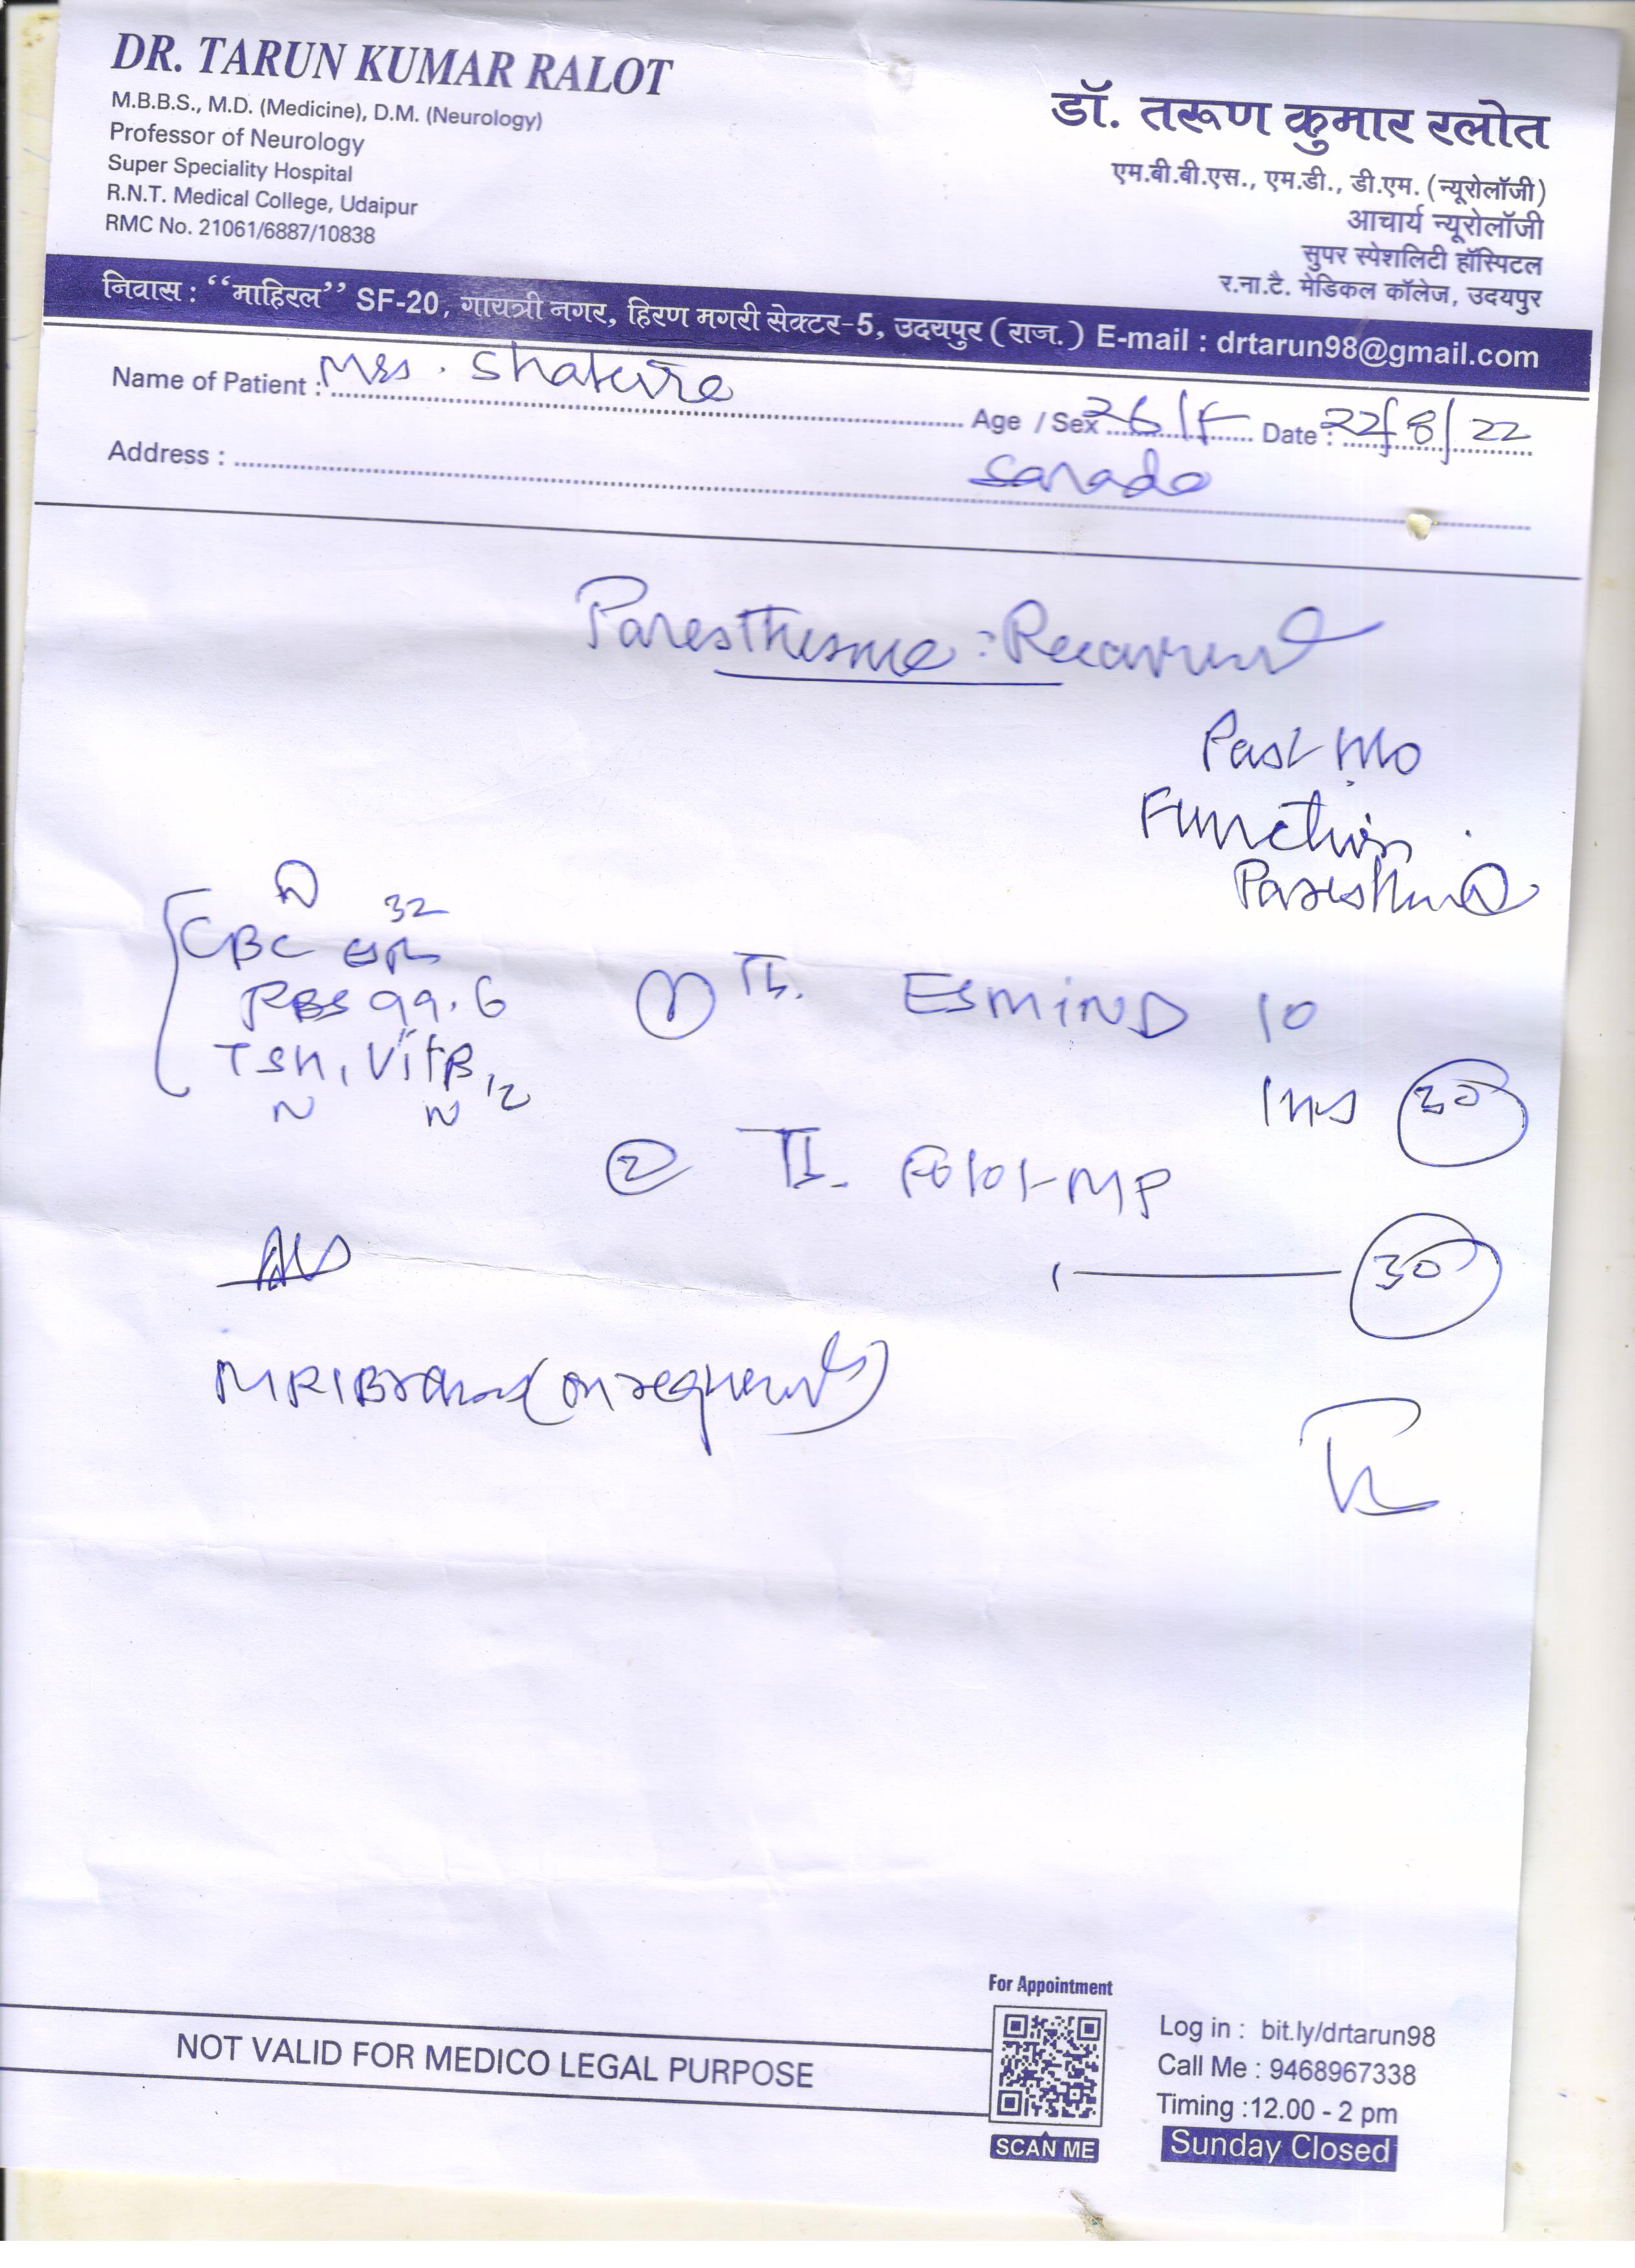 DR. TARUN KUMAR RALOT
M.B.B.S., M.D. (Medicine), D.M. (Neurology)
Professor of Neurology
Super Speciality Hospital
R.N.T. Medical College, Udaipur
RMC No. 21061/6887/10838
डॉ. तरूण कुमार रलोत
एम.बी.बी.एस., एम.डी., डी.एम. (न्यूरोलॉजी)
आचार्य न्यूरोलॉजी
सुपर स्पेशलिटी हॉस्पिटल
र.ना.टै. मेडिकल कॉलेज, उदयपुर
निवास : “माहिरल” SF-20, गायत्री नगर, हिरण मगरी सेक्टर-5, उदयपुर (राज.) E-mail : drtarun98@gmail.com
Name of Patient : Mrs. Age / Sex 26/F Date : 22/8/22
Address :
Past
Function
N 32
CBC ESR
RBS 99.6
TSH, Vit B12
N N
1 Tb. ESMIND 10
30
2 Tb.
1 30
MRI Brain
NOT VALID FOR MEDICO LEGAL PURPOSE
For Appointment
SCAN ME
Log in : bit.ly/drtarun98
Call Me : 9468967338
Timing :12.00 - 2 pm
Sunday Closed